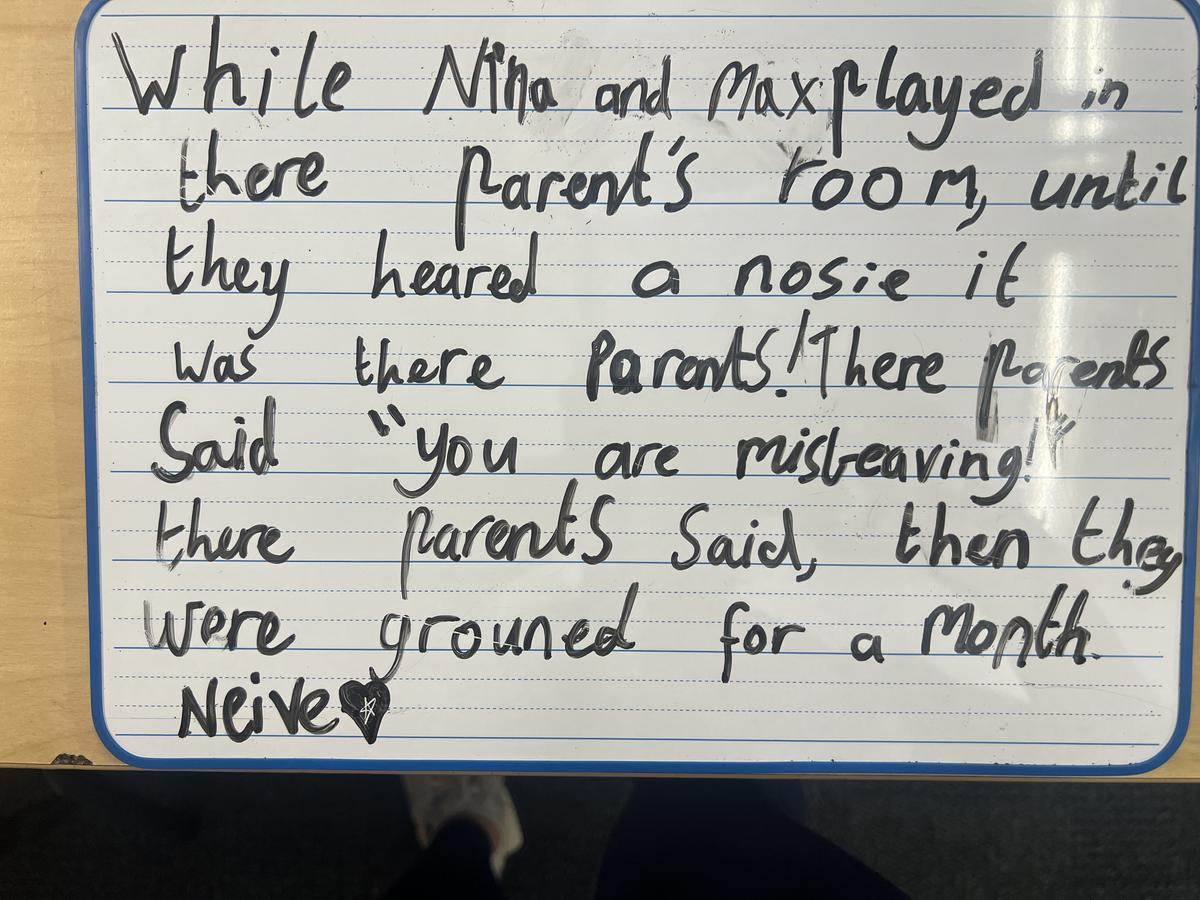 While Nina and Max played in
there parent's room, until
they heared a nosie it
was there parents! There parents
Said "you are misbeaving!"
there parents said, then they
were grouned for a month.
Neive